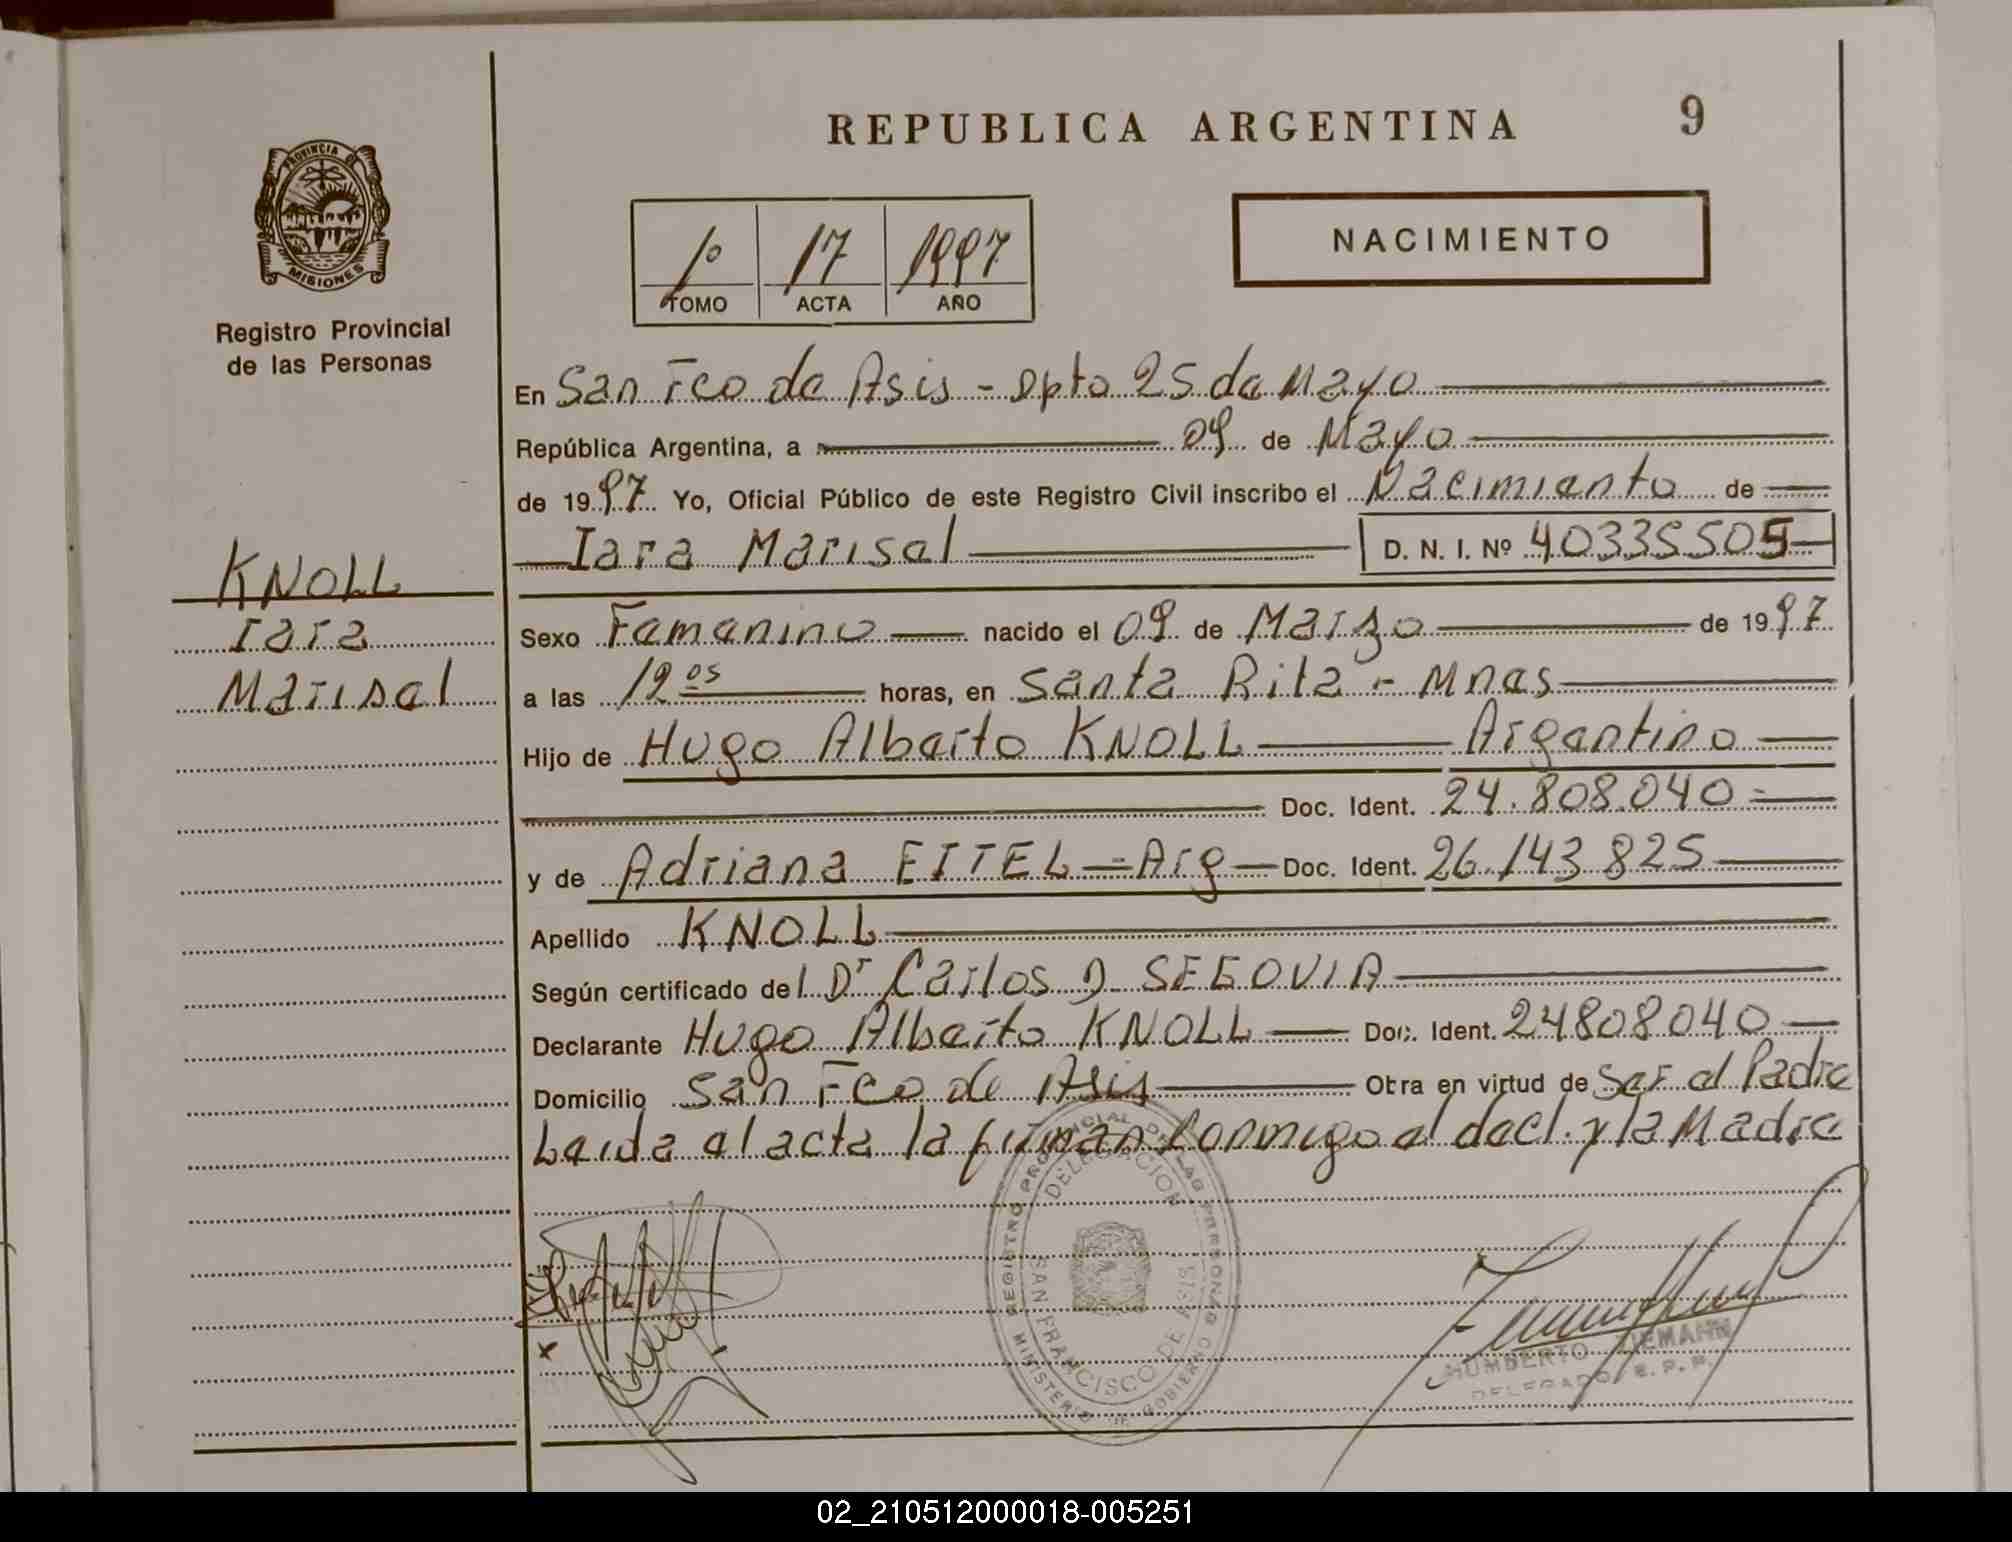 REPUBLICA ARGENTINA 9
PROVINCIA DE
MISIONES
Registro Provincial
de las Personas
1º 17 1997
TOMO ACTA AÑO
NACIMIENTO
En San Fco de Asis - Dpto 25 de Mayo
República Argentina, a 09 de Mayo
de 1997 Yo, Oficial Público de este Registro Civil inscribo el Nacimiento de
Iara Marisel D. N. I. Nº 40335505
KNOLL
Iara
Marisel
Sexo Femenino nacido el 09 de Marzo de 1997
a las 12 05 horas, en Santa Rita - Mnes
Hijo de Hugo Alberto KNOLL Argentino
Doc. Ident. 24.808.040
y de Adriana EITEL - Arg - Doc. Ident. 26.143.825
Apellido KNOLL
Según certificado del Dr Carlos D SEGOVIA
Declarante Hugo Alberto KNOLL Doc. Ident. 24808040
Domicilio San Fco de Asis Obra en virtud de Ser el Padre
Leida el acta la firman conmigo el decl. y la Madre
REGISTRO PROVINCIAL DE LAS PERSONAS
DELEGACION
SAN FRANCISCO DE ASIS
MINISTERIO DE GOBIERNO
HUMBERTO ZIEMANN
DELEGADO R. P. P.
02_210512000018-005251